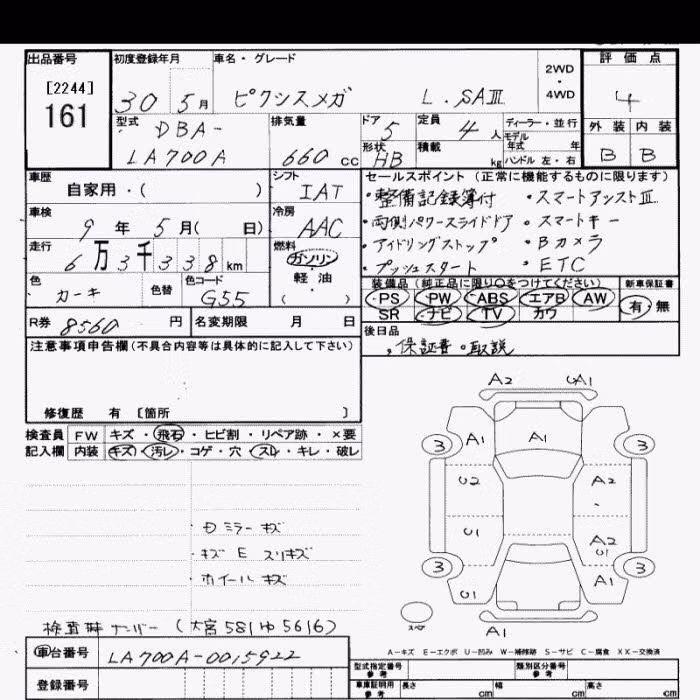 出品番号
[2244]
161
初度登録年月
30 5月
車名・グレード
ピクシスメガ L. SAⅢ
2WD
・
4WD
評価点
4
外装 内装
B B
型式
DBA-
LA700A
排気量
660 cc
ドア
5
定員
4人
形状
HB
積載
kg
ディーラー・並行
モデル
年式 年
ハンドル 左・右
車歴
自家用・( )
シフト
IAT
車検
9年 5月( 日)
冷房
AAC
走行
6万3千338km
燃料
ガソリン
・
軽油
・
( )
色
カーキ
色替
色コード
G55
R券
8560 円
名変期限 月 日
セールスポイント (正常に機能するものに限ります)
・整備記録簿付 ・スマートアシストⅢ
・両側パワースライドドア ・スマートキー
・アイドリングストップ ・Bカメラ
・プッシュスタート ・ETC
装備品(純正品に限り〇をつけてください) 新車保証書
PS PW ABS エアB AW
SR ナビ TV カワ
有・無
後日品
・保証書・取説
注意事項申告欄(不具合内容等は具体的に記入して下さい)
修復歴 有 [箇所 ]
検査員
記入欄
FW キズ・飛石・ヒビ割・リペア跡・×要
内装 キズ・汚レ・コゲ・穴・スレ・キレ・破レ
・ミラーキズ
・キズ E スリキズ
・ホイールキズ
検査時ナンバー (大宮581ゆ5616)
A2 A1
3 A1 A1 3
U2 A2
U1 A2
U1
3 U1 A1 3
スペア
A1
A-キズ E-エクボ U-凹み W-補修跡 S-サビ C-腐食 XX-交換済
車台番号
LA700A-0015922
登録番号
型式指定番号
参考
類別区分番号
参考
車庫証明用
参考
長さ cm 幅 cm 高さ cm